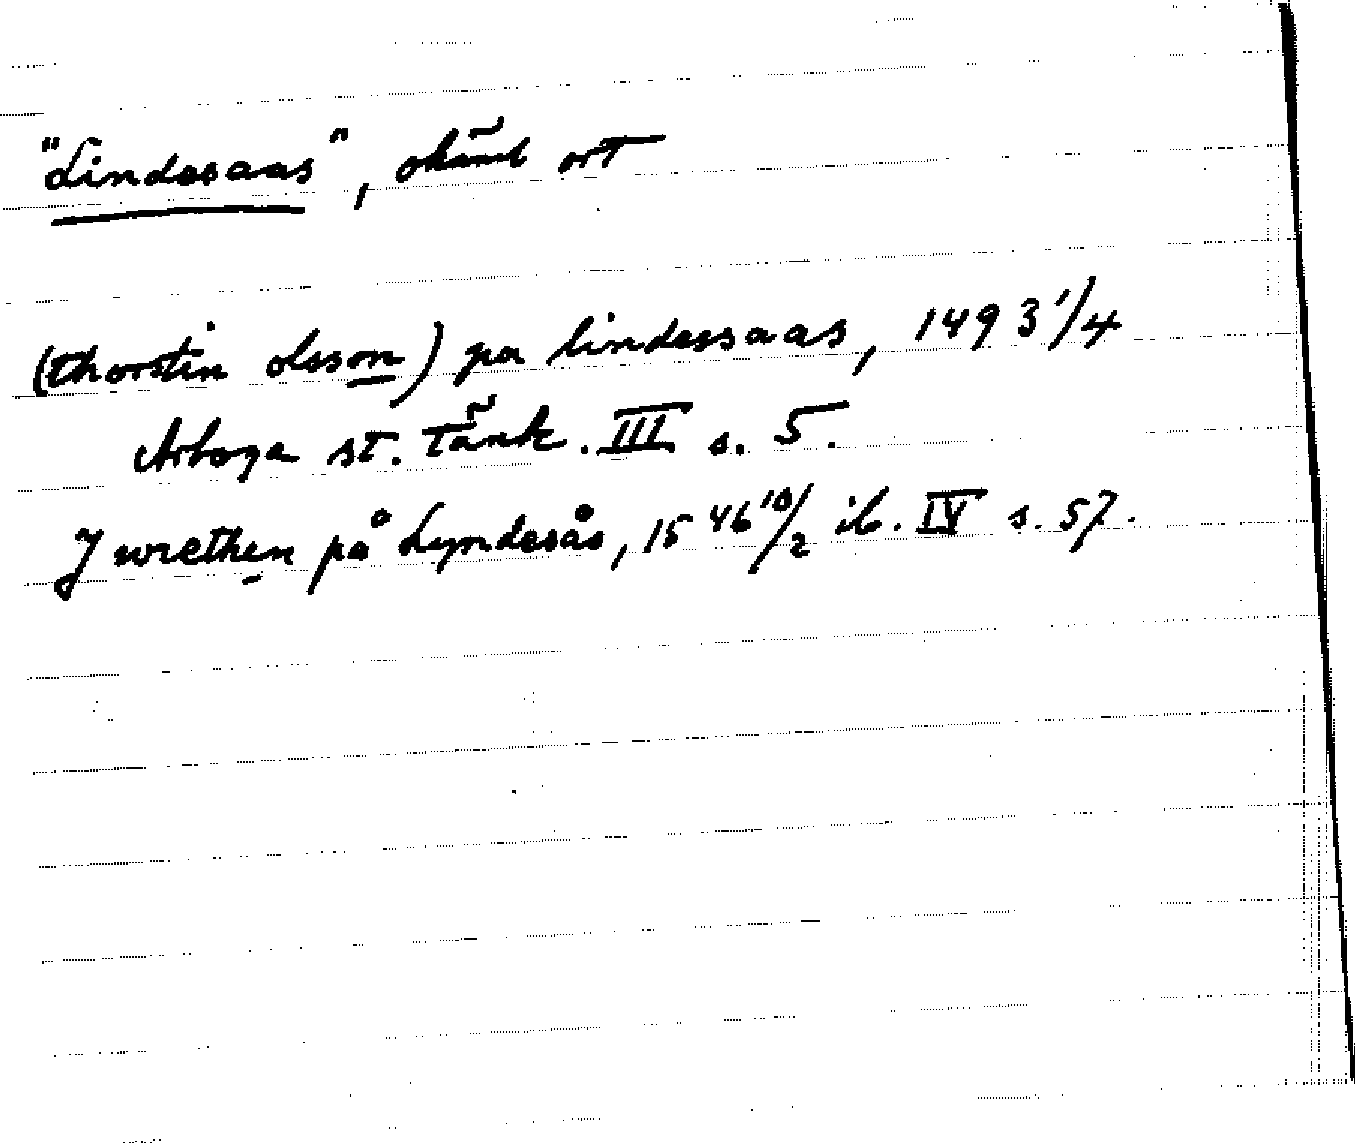 "Lindesaas", okänd ort
(thorstin olsson) pa lindessaas, 1493 1/4
Arboga st. tänk. III s. 5.
J wrethen på Lyndesås, 1546 10/2 ib. IV s. 57.